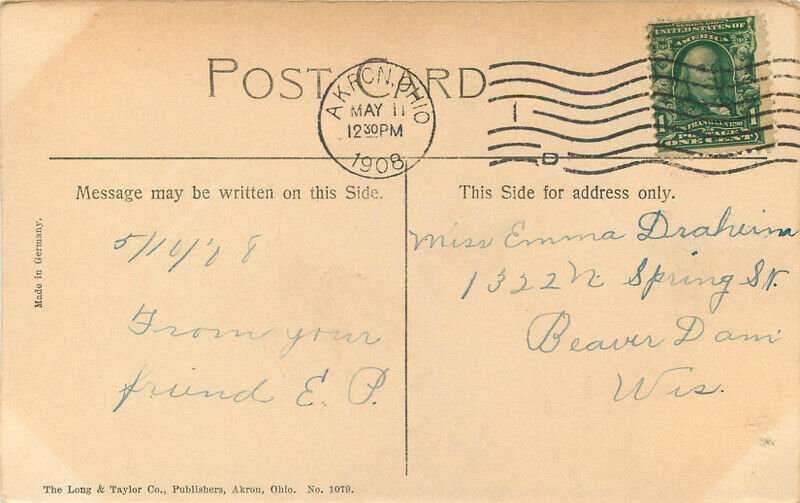 POST CARD
AKRON, OHIO
MAY 11
1230PM
1908
1
D
UNITED STATES OF
AMERICA
1 FRANKLIN 1
POSTAGE
ONE CENT
Message may be written on this Side.
This Side for address only.
Made in Germany.
5/10/'08
From your
friend E. P.
Miss Emma Draheim
1322 N. Spring St.
Beaver Dam
Wis.
The Long & Taylor Co., Publishers, Akron, Ohio. No. 1079.